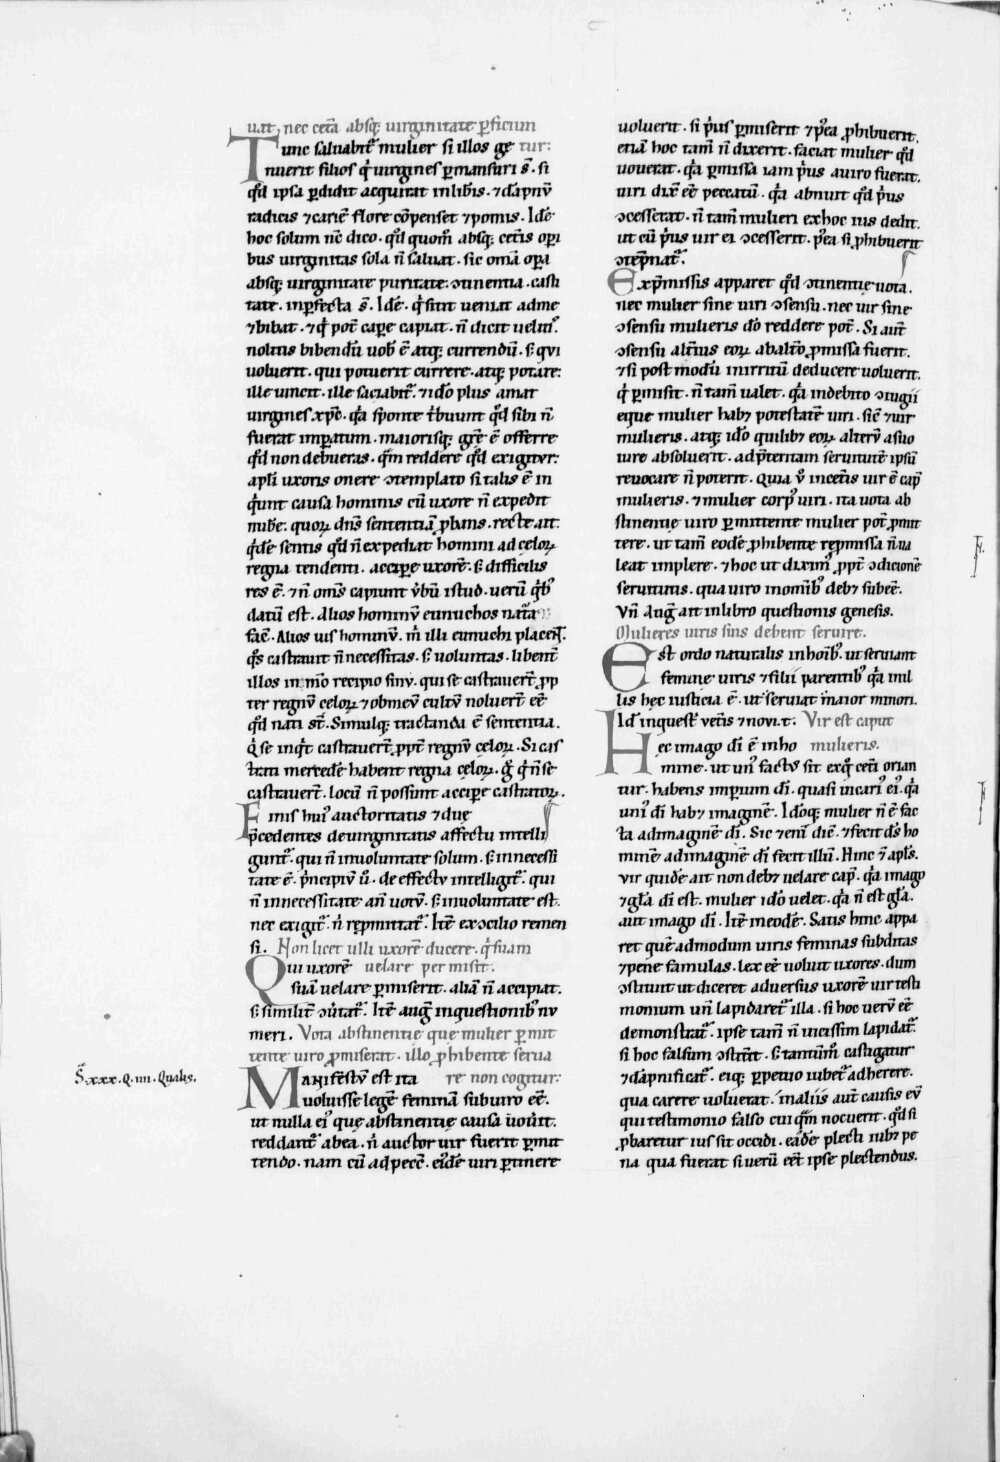 uat, nec cetã absq; uirginitate ꝑficiun
Tunc saluabit᷑ mulier si illos ge tur:
nuerit filios q̇ uirgines ꝑmansuri s̄. si
qd̓ ipsa ꝑdidit acquirat inlibis. ⁊dãpnũ
radicis ⁊cariẽ flore cõpenset ⁊pomis. Idẽ
hoc solum nẽ dico. qd̓ quom̃ absq; cetis oꝑi
bus uirginitas sola ñ saluat. sic om̃a oꝑa
absq; uirginitate puritate. ↄtinentia. casti
tate. inꝑfecta s̄. Idẽ. q̇ sitit ueniat adme
⁊bibat. ⁊q̇ pot̃ caꝑe capiat. ñ dicit uelitis
nolitis bibendũ uob̓ ẽ atq; currendũ. s; qui
uoluerit. qui potuerit currere. atq; potare:
ille uincit. ille saciabit᷑. ⁊idõ plus amat
uirgines xp̃c. q̇a sponte t̓buunt qd̓ sibi ñ
fuerat imꝑatum. maiorisq; grẽ ẽ offerre
qd̓ non debueras. qm̃ reddere qd̓ exigitur:
apli uxoris onere ↄtemplato si talis ẽ in
q̇unt causa hominis cũ uxore ñ expedit
nub̓e. quoꝝ dñs sententiã ꝓbans. recte ait.
q̇dẽ sentis qd̓ ñ expediat homini ad celoꝝ
regna tendenti. acciꝑe uxorẽ. s; difficilis
res ẽ. ⁊ñ om̃s capiunt ũbũ istud. uerũ q̇b̓
datũ est. Alios hominũ eunuchos nat̃a
fac̃. Alios uis hominũ. m̓ illi eunuchi placẽt.
q̓s castrauit ñ necessitas. s; uoluntas. libent̃
illos in m̃o recipio sinũ. qui se castrauert̃ ꝓp
ter regnũ celoꝝ ⁊obmeũ cultũ noluert̃ eẽ
qd̓ nati st̃. Simulq; tractanda ẽ sententia.
Q̇ se inq̇t castrauert̃ ꝓpt̃ regnũ celoꝝ. Si cas
trati mercedẽ habent regna celoꝝ. g̊ q̇ ñ se
castrauert̃. locũ ñ possunt acciꝑe castratoꝝ.
Finis hui᷒ auctoritatis ⁊due
p̃cedentes deuirginitatis affectu intelli
gunt᷑. qui ñ inuoluntate solum. s; innecessi
tate ẽ. p̓ncipiũ ũ. de effectu intelligit᷑. qui
ñ innecessitate an̄ uotũ. s; inuoluntate est.
nec exigit᷑. n̓ reꝑmittat᷑. Itẽ exↄcilio remen
si. Non licet ulli uxorẽ ducere. q̇ suam
Qui uxorẽ uelare permisit.
suã uelare ꝑmiserit. aliã ñ accipiat.
s; similit̃ ↄũtat᷑. Itẽ aug̃ inquestionib᷒ nu
meri. Vota abstinentie que mulier ꝑmit
tente uiro ꝓmiserat. illo ꝓhibente serua
Manifestũ est ita re non cogitur.
uoluisse legẽ feminã sub uiro eẽ.
ut nulla ei᷒ que abstinentie causa uouit.
reddant᷑ abea. ñ auctor uir fuerit ꝑmit
tendo. nam cũ ad pecc̃. ei᷒dẽ uiri ꝑtinere
S̃.xxx.Q.iiii. Qualis.
uoluerit. si p̓us ꝑmiserit ⁊p᷒ea ꝓhibuerit.
etiã hoc tam̃ ñ dixerit. faciat mulier qd̓
uouerat. q̇a ꝑmissa iam p̓us auiro fuerat.
uiri dix̃ eẽ peccatũ. q̇a abnuit qd̓ p̓us
ↄcesserat. ñ tam̃ mulieri exhoc ius dedit.
ut cũ p̓us uir ei ↄcesserit. p᷒ea si ꝓhibuerit
ↄtẽpnat᷑.
Exp̃missis apparet qd̓ ↄtinentie uota.
nec mulier sine uiri ↄsensu. nec uir sine
ↄsensu mulieris dõ reddere pot̃. Si aut̃
ↄsensu alt̃ius eoꝝ abalt̃o ꝓmissa fuerit.
⁊si post modũ inirritũ deducere uoluerit.
q̇ ꝑmisit. ñ tam̃ ualet. q̇a indebito ↄiugii
eque mulier habꝫ potestatẽ uiri. sic̃ ⁊uir
mulieris. atq; idõ quilibꝫ eoꝝ alterũ asuo
iure absoluerit. ad p̃teritam seruitutẽ ipsũ
reuocare ñ poterit. Quia ũ incet̃is uir ẽ cap̃
mulieris. ⁊mulier corp᷒ uiri. ita uota ab
stinentie uiro ꝑmittente mulier pot̃ ꝓmit
tere. ut tam̃ eodẽ ꝓhibente reꝓmissa ñ ua
leat implere. ⁊hoc ut dixim᷒ ꝓpt̃ ↄdicionẽ
seruitutis. qua uiro inomib᷒ debꝫ subeẽ.
Vñ Aug̃ ait inlibro questionis genesis.
Mulieres uiris suis debent seruire.
Est ordo naturalis inhoĩb᷒. ut seruiant
femine uiris ⁊filii parentib᷒ q̇a inil
lis hec iusticia ẽ. ut seruiat maior minori.
Id̓ inquest᷒ uet̃is ⁊noui.t. Vir est caput
Hec imago dĩ ẽ inho mulieris.
mine. ut un᷒ fact᷒ sit exq̊ cet̃i orian
tur. habens imꝑium dĩ. quasi uicari᷒ ei᷒. q̇a
uni᷒ dĩ habꝫ imaginẽ. Idõq; mulier ñ ẽ fac
ta adimaginẽ dĩ. Sic ⁊enĩ diẽ. ⁊fecit dš ho
minẽ adimaginẽ dĩ fecit illũ. Hinc ⁊apl̃s.
Vir quidẽ ait non debꝫ uelare cap̃. q̇a imago
⁊gl̃a dĩ est. mulier idõ uelet. q̇a ñ est gl̃a.
aut imago dĩ. Itẽ ineodẽ. Satis hinc appa
ret quẽadmodum uiris feminas subditas
⁊pene famulas. lex eẽ uoluit uxores. dum
ↄstituit ut diceret aduersus uxorẽ uir testi
monium uñ lapidaret᷑ illa. si hoc uerũ eẽ
demonstrat᷑. ipse tam̃ ñ uicissim lapidat᷑.
si hoc falsum ↄstitit. s; tantũm̃ castigatur
⁊dãpnificat᷑. eiq; ꝑpetuo iubet᷑ adherere.
qua carere uoluerat. inaliis aut̃ causis eũ
qui testimonio falso cui qm̃ nocuerit. qd̓ si
ꝓbaretur ius sit occidi. eadẽ plecti iubꝫ pe
na qua fuerat si uerũ eẽt ipse plectendus.